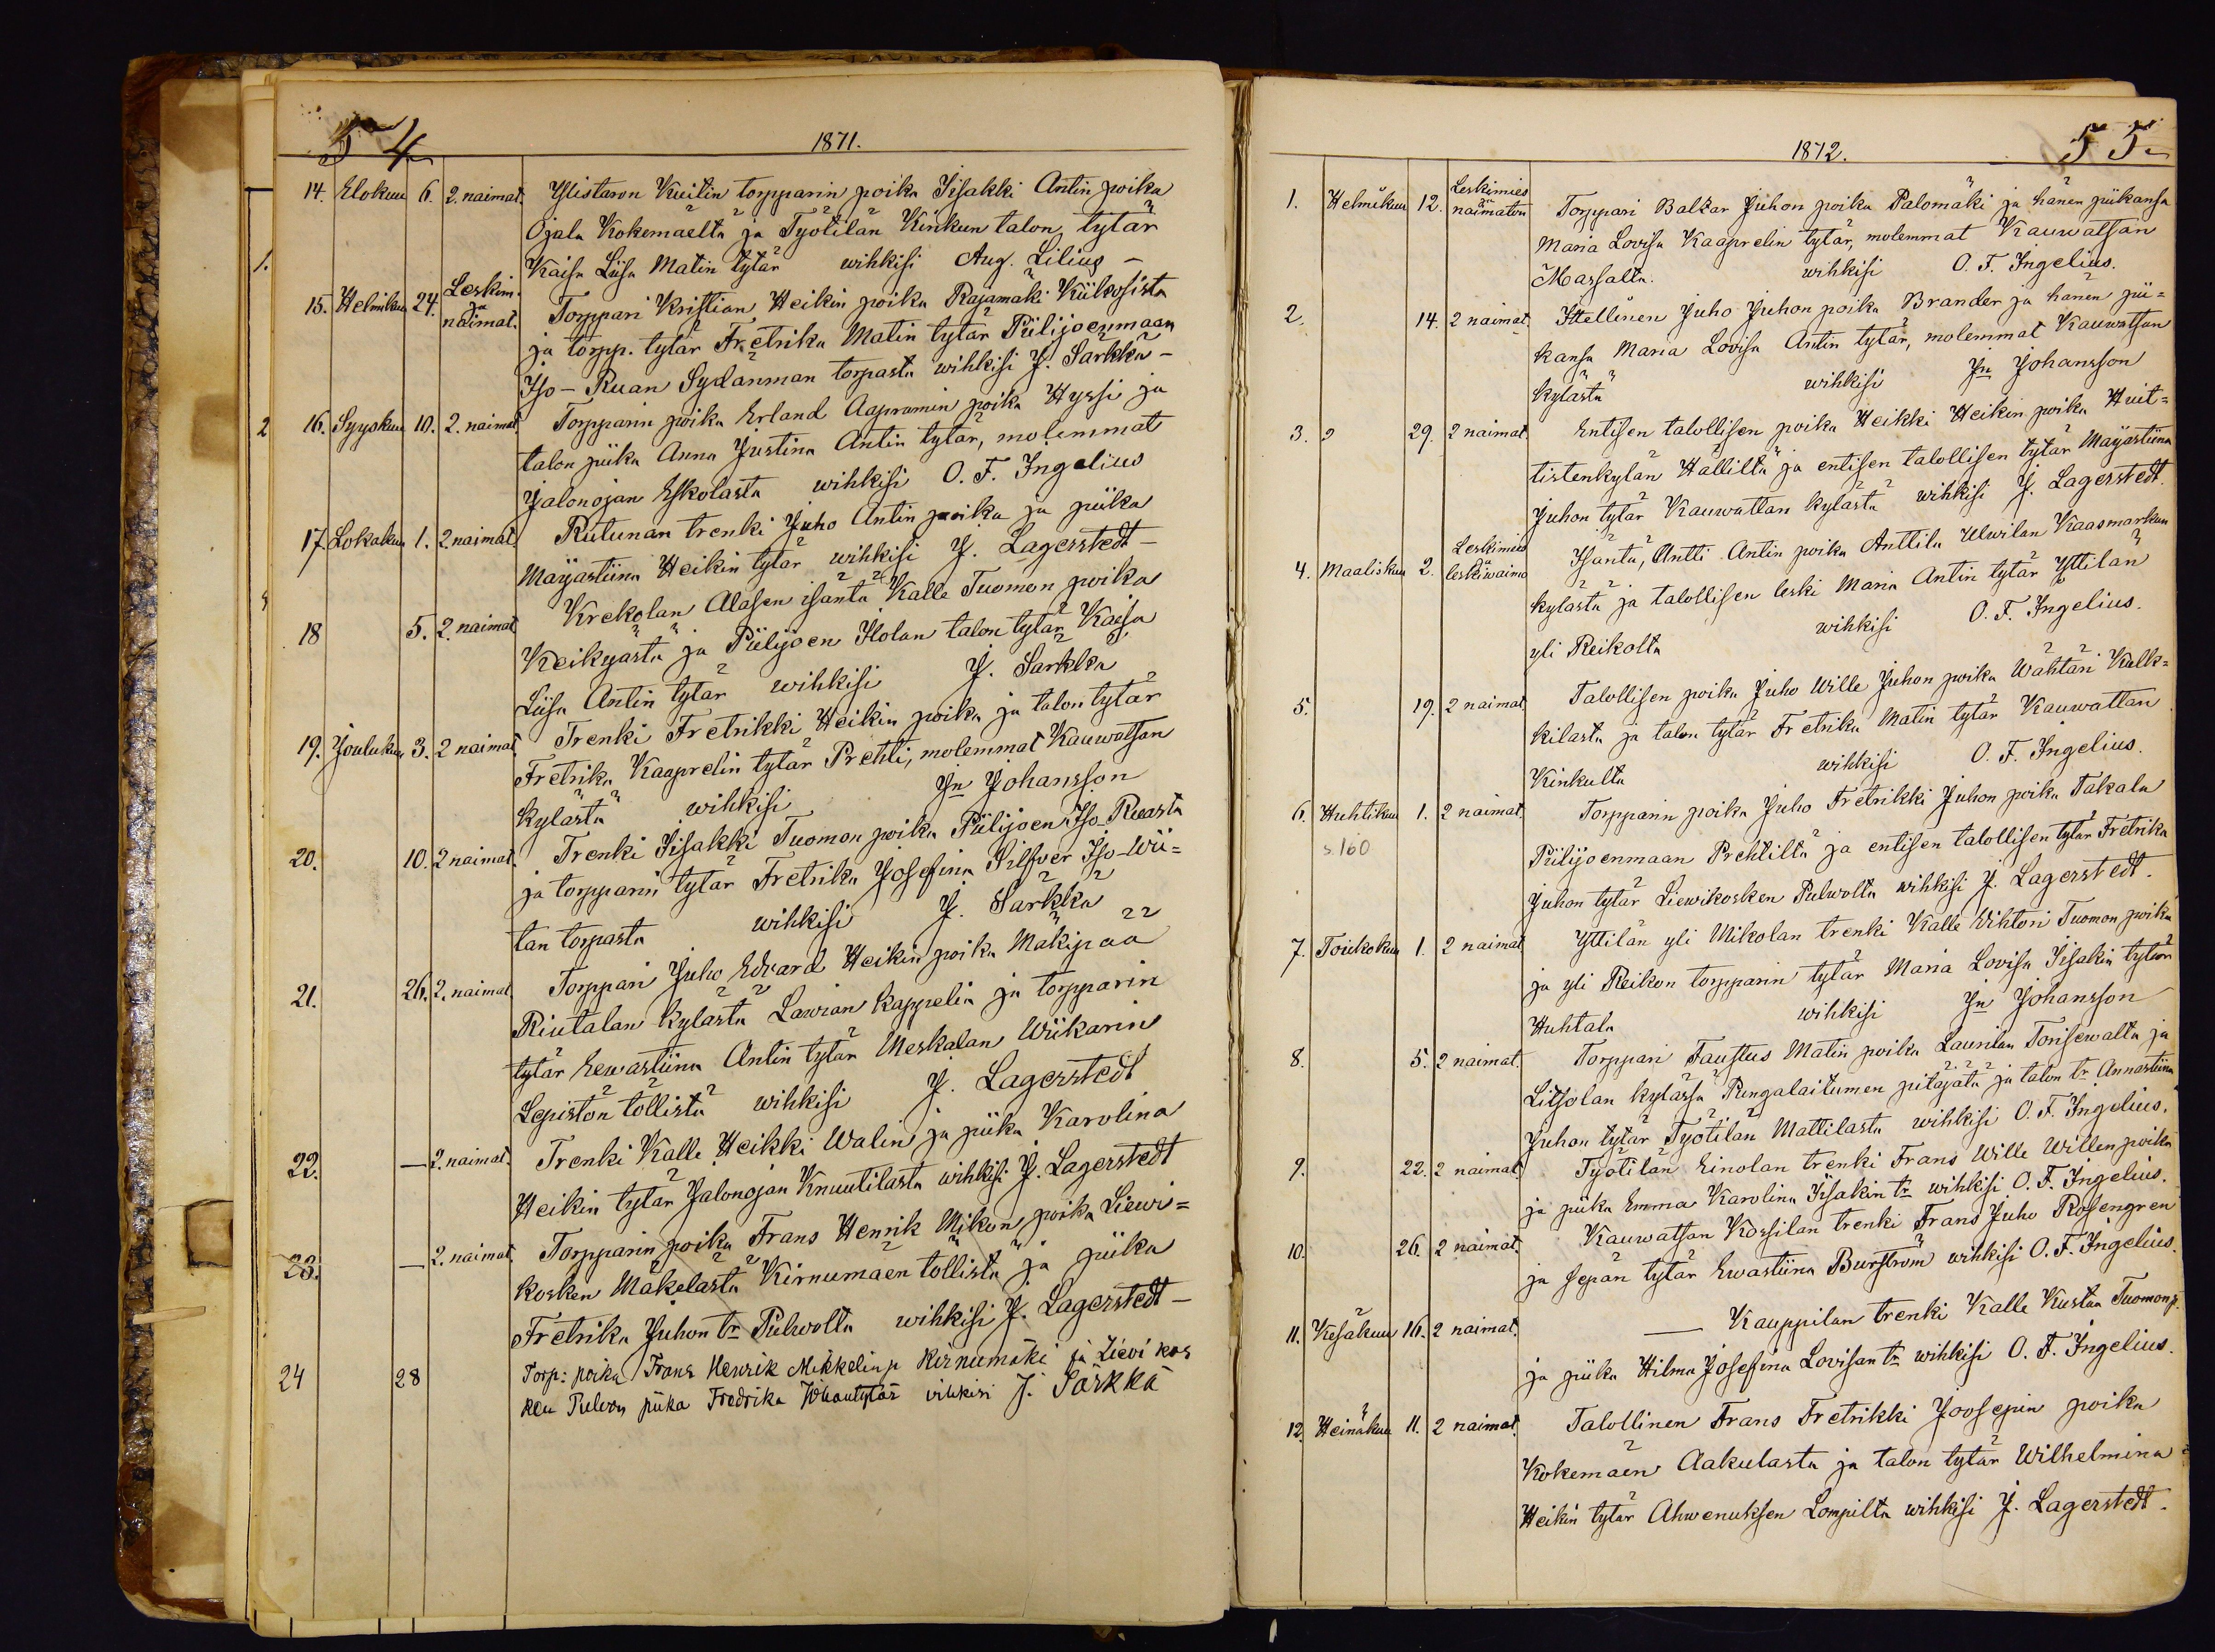 54
1871.
14. Elokuu 6. 2. naimat. Ylistaron Kuitin torpparin poika Iisakki Antin poika
Ojala Kokemäeltä ja Työtilän Kinkun talon tytär
Kaisa Liisa Matin tytär wihkisi Aug. Lilius –
15. Helmikuu 24. Leskim. ja naimat. Torppari Kristian Heikin poika Rajamäki Kiikosista
ja torpp. tytär Fretrika Matin tytär Piilijoenmaan
Iso-Ruan Sydänman torpasta wihkisi J. Särkkä –
16. Syyskuu 10. 2. naimat. Torpparin poika Erland Aapramin poika Hyssi ja
talon piika Anna Justina Antin tytär, molemmat
Jalonojan Eskolasta wihkisi O. F. Ingelius
17. Lokakuu 1. 2 naimat. Rutunan trenki Juho Antin poika ja piika
Maijastiina Heikin tytär wihkisi J. Lagerstedt –
18 5. 2. naimat Krekolan Alasen isäntä Kalle Tuomon poika
Keikyästä ja Piilijoen Ilolan talon tytär Kaisa
Liisa Antin tytär wihkisi J. Särkkä
19. Joulukuu 3. 2 naimat Trenki Fretrikki Heikin poika ja talon tytär
Fretrika Kaaprelin tytär Prehti, molemmat Kauwatsan
kylästä wihkisi Jn Johansson
20. 10. 2 naimat. Trenki Iisakki Tuomon poika Piilijoen Iso-Ruasta
ja torpparin tytär Fretrika Josefina Silfver Iso-Wii=
tan torpasta wihkisi J. Särkkä
21. 26. 2. naimat. Torppari Juho Edvard Heikin poika Mäkipää
Riutalan kylästä Lawian kappelia ja torpparin
tytär Eewastiina Antin tytär Meskalan Wiikarin
Lepistön töllistä wihkisi J. Lagerstedt
22. — 2. naimat. Trenki Kalle Heikki Walin ja piika Karolina
Heikin tytär Jalonojan Knuutilasta wihkisi J. Lagerstedt
23. — 2. naimat. Torpparin poika Frans Henrik Mikon poika Liewi=
kosken Mäkelästä Kirnumäen töllistä ja piika
Fretrika Juhon tr Pulwolta wihkisi J. Lagerstedt –
24 28 Torp: poika Frans Henrik Mikkelin p Kirnumäki ja Lievikos
ken Pulvon piika Fredrika Juhantytär vihkisi J. Särkkä
55
1872.
1. Helmikuu 12. Leskimies ja naimaton Torppari Baltzar Juhon poika Palomäki ja hänen piikansa
Maria Lovisa Kaaprelin tytär, molemmat Kauwatsan
Massalta. wihkisi O. F. Ingelius.
2. 14. 2 naimat. Itellinen Juho Juhon poika Brander ja hänen pii=
kansa Maria Lovisa Antin tytär, molemmat Kauwatsan
kylästä wihkisi Jn Johansson
3. 29. 2 naimat. Entisen talollisen poika Heikki Heikin poika Huit=
tistenkylän Hällilta ja entisen talollisen tytär Maijastiina
Juhon tytär Kauwattan kylästä wihkisi J. Lagerstedt.
4. Maaliskuu 2. Leskimies ja leskiwaimo Isäntä, Antti Antin poika Anttila Ulwilan Kaasmarkun
kylästä ja talollisen leski Maria Antin tytär Yttilän
yli Reikolta wihkisi O. F. Ingelius.
5. 19. 2 naimat. Talollisen poika Juho Wille Juhon poika Wähtäri Kulk=
kilasta ja talon tytär Fretrika Matin tytär Kauwattan
Kinkulta wihkisi O. F. Ingelius.
6. Huhtikuu 1. 2 naimat. Torpparin poika Juho Fretrikki Juhon poika Takala
s. 160
Piilijoenmaan Prehtiltä ja entisen talollisen tytär Fretrika
Juhon tytär Liewikosken Pulwolta wihkisi J. Lagerstedt.
7. Toukokuu 1. 2 naimat Yttilän yli Mikolan trenki Kalle Wihtori Tuomon poika
ja yli Reikon torpparin tytär Maria Lovisa Iisakin tytär
Huhtala wihkisi Jn Johansson
8. 5. 2 naimat. Torppari Faustus Matin poika Launilan Torisewalta ja
Liitsolan kylässä Pungalaitumen pitäjätä ja talon tr Annastiina
Juhan tytär Työtilän Mattilasta wihkisi O. F. Ingelius.
9. 22. 2 naimat. Tyotilän Einolan trenki Frans Wille Willen poika
ja piika Emma Karolina Iisakin tr wihkisi O. F. Ingelius.
10. 26. 2 naimat. Kauwatsan Kossilan trenki Frans Juho Rosengren
ja sepän tytär Ewastiina Burström wihkisi O. F. Ingelius.
11. Kesäkuu 16. 2 naimat. — Kauppilan trenki Kalle Kustaa Tuomon p.
ja piika Hilma Josefina Lovisan tr wihkisi O. F. Ingelius.
12. Heinäkuu 11. 2 naimat. Talollinen Frans Fretrikki Joosepin poika
Kokemäen Aakulasta ja talon tytär Wilhelmina
Heikin tytär Ahwenuksen Lompilta wihkisi J. Lagerstedt.